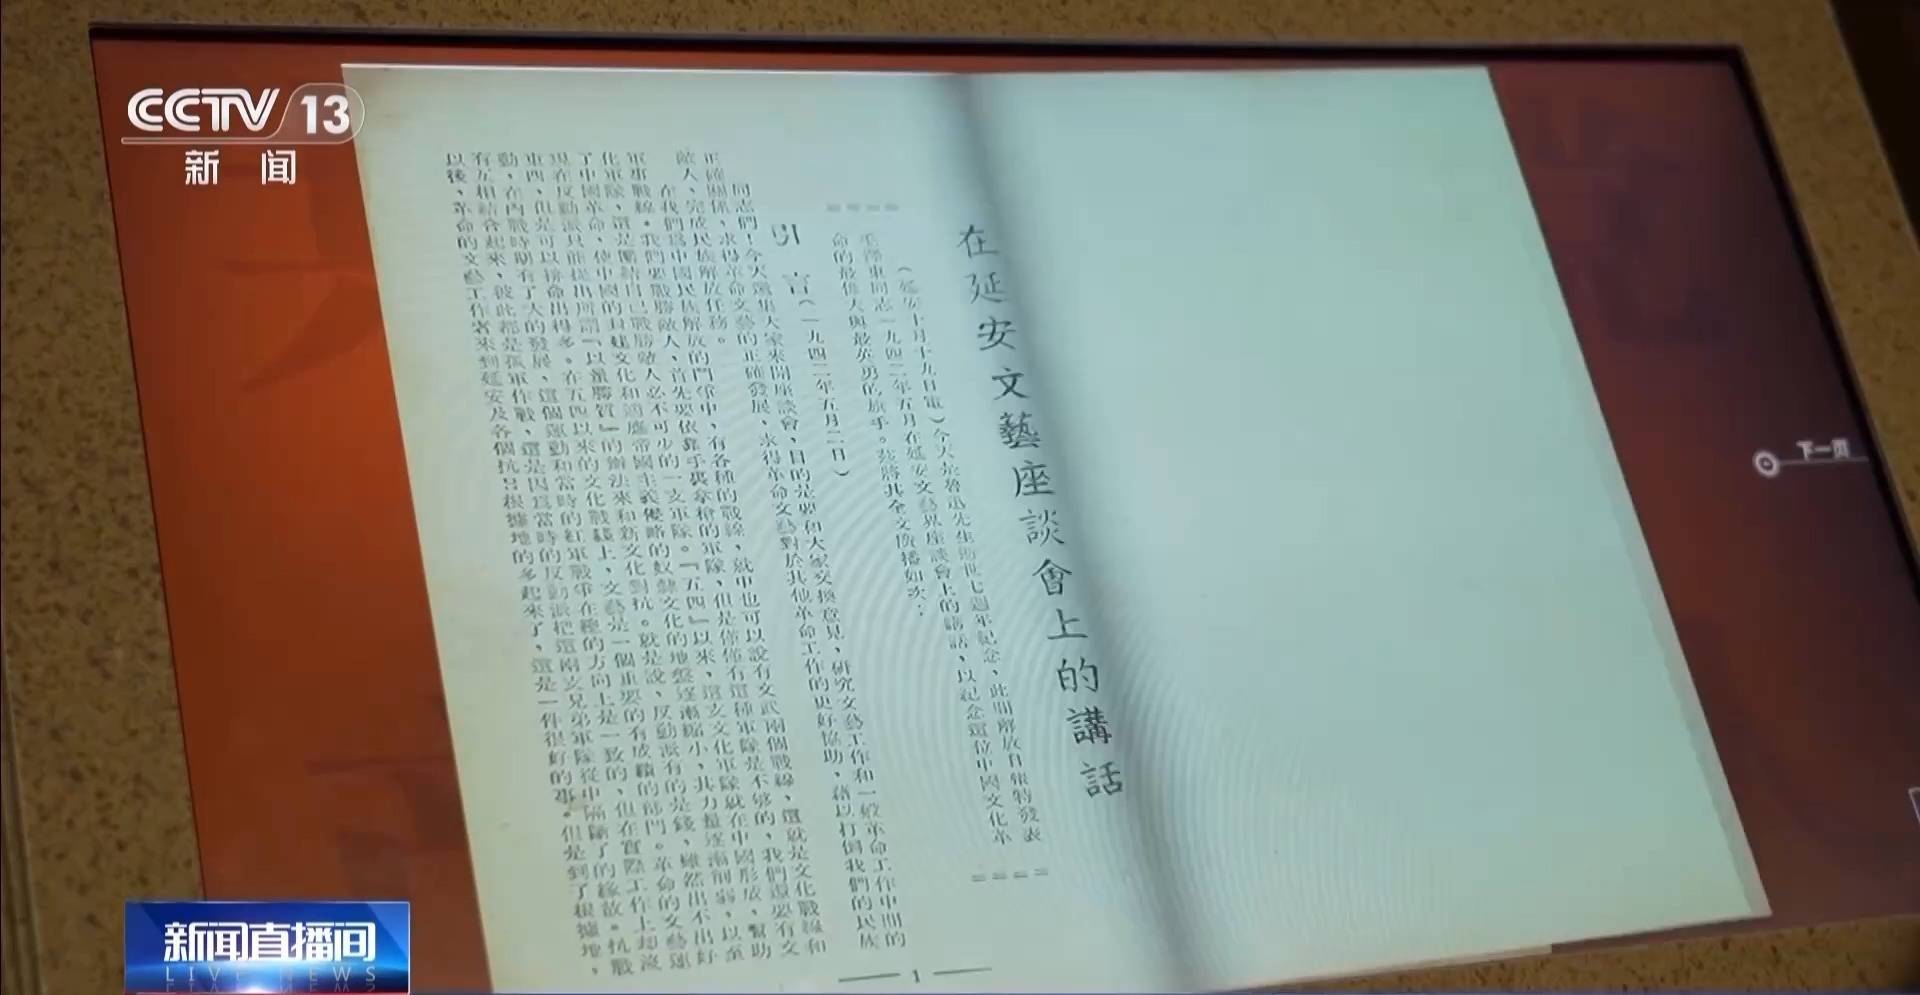 CCTV 13
新 闻
在延安文藝座談會上的講話
(延安十月十九日電)今天是魯迅先生逝世七週年紀念,此間解放日報特發表
毛澤東同志一九四二年五月在延安文藝界座談會上的講話,以紀念這位中國文化革
命的最偉大與最英勇的旗手。茲將其全文廣播如次:
引 言(一九四二年五月二日)
同志們!今天邀集大家來開座談會,目的是要和大家交換意見,研究文藝工作和一般革命工作中間的
正確關係,求得革命文藝的正確發展,求得革命文藝對於其他革命工作的更好協助,藉以打倒我們的民族
敵人、完成民族解放任務。
在我們爲中國民族解放的鬥爭中,有各種的戰線,就中也可以說有文武兩個戰線,這就是文化戰線和
軍事戰線。我們要戰勝敵人,首先要依靠手裏拿槍的軍隊,但是僅僅有這種軍隊是不够的,我們還要有文
化軍隊,這是團結自己戰勝敵人必不可少的一支軍隊。『五四』以來,這支文化軍隊就在中國形成,幫助
了中國革命,使中國的封建文化和適應帝國主義侵略的奴隸文化的地盤逐漸縮小,其力量逐漸削弱,以至
現在反動派只能提出所謂『以量勝質』的辦法來和新文化對抗。就是說,反動派有的是錢,雖然出不出好
東西,但是可以拚命出得多。在五四以來的文化戰綫上,文藝是一個重要的有成績的部門。革命的文藝運
動,在內戰時期有了大的發展,這個運動和當時的紅軍戰爭在總的方向上是一致的,但在實際工作上却沒
有互相結合起來,彼此都是孤軍作戰,這是因爲當時的反動派把這兩支兄弟軍隊從中隔斷了的緣故。抗戰
以後,革命的文藝工作者來到延安及各個抗日根據地的多起來了,這是一件很好的事。但是到了根據地,
1
下一页
新闻直播间
LIVE NEWS